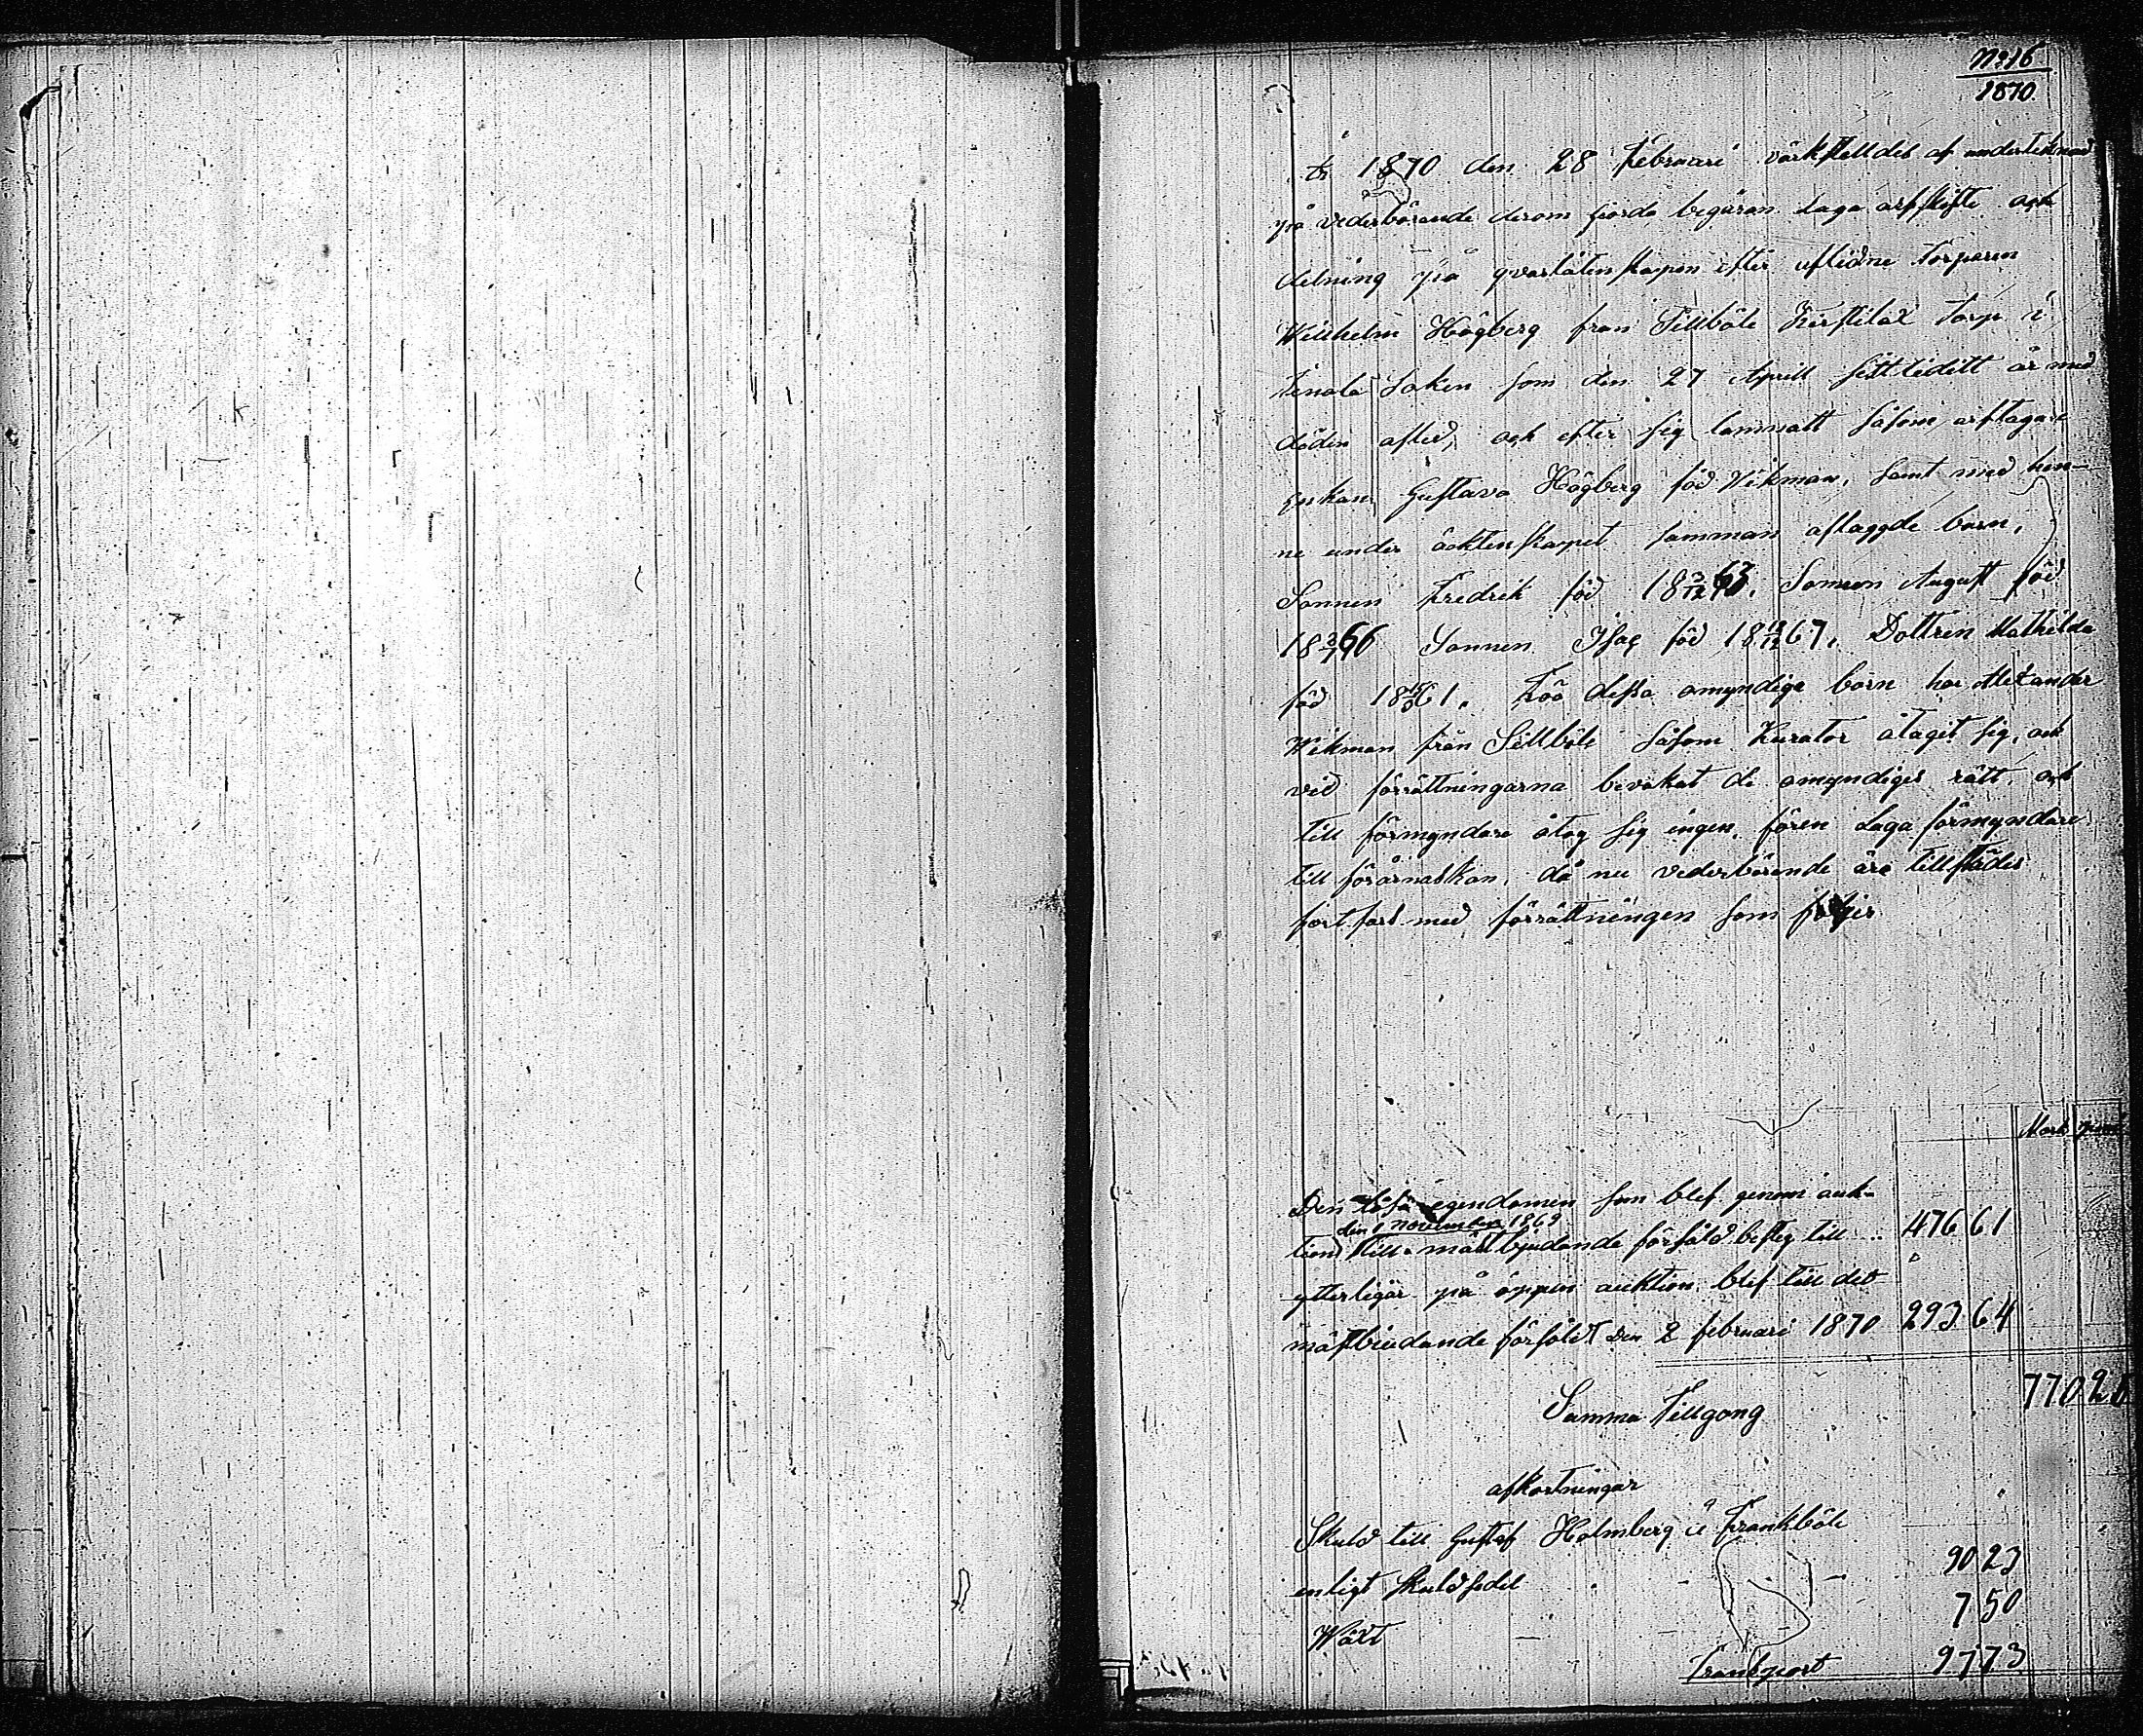 No 16
1870.
År 1870 den 28 Februari värkstelldes af underteknad
på vederbörande derom gjorda begäran Laga arfskifte och
delning på qvarlåtenskapen efter aflidne Torparen
Willhelm Högberg från Sillböle Kerstilax Torp i
Tenala Soken som den 27 Aprill sistleditt år med
döden afled, och efter sig lamnatt såsom arftagare
Enkan Gustava Högberg föd Wikman, samt med hen-
ne under äcktenskapet samman aflaggde barn,
Sonnen Fredrik föd 18 3/12 63, Sonnen August föd
18 3/7 66 Sonnen Isac föd 18 12/12 67, Dottren Mathilda
föd 18 61. Föö dessa omyndiga barn har Allexander
Wikman från Sillböle såsom Kurator åtagit sig, och
vid förrättningarna bevakat de omyndiges rätt, och
till förmyndare åtog sig ingen, fören Laga förmyndare
till förårnas kan, då nu vederbörande äro tillstädes
fortfars med förrättningen som följer
Mark
Den lösa egendomen som blef genom auk-
den 1 november 1869
tion till mästbjudande försåld besteg till .. 476 61
ytterligar på öppen auktion blef till det
mästbiudande försåldt den 2 februari 1870 293 64
770 2
Summa Tillgong
afkortningar
Skuld till Gustaf Holmberg i Frankböle
enligt skuldsedel 90 23
Wäxt 7 50
Transport 97 73